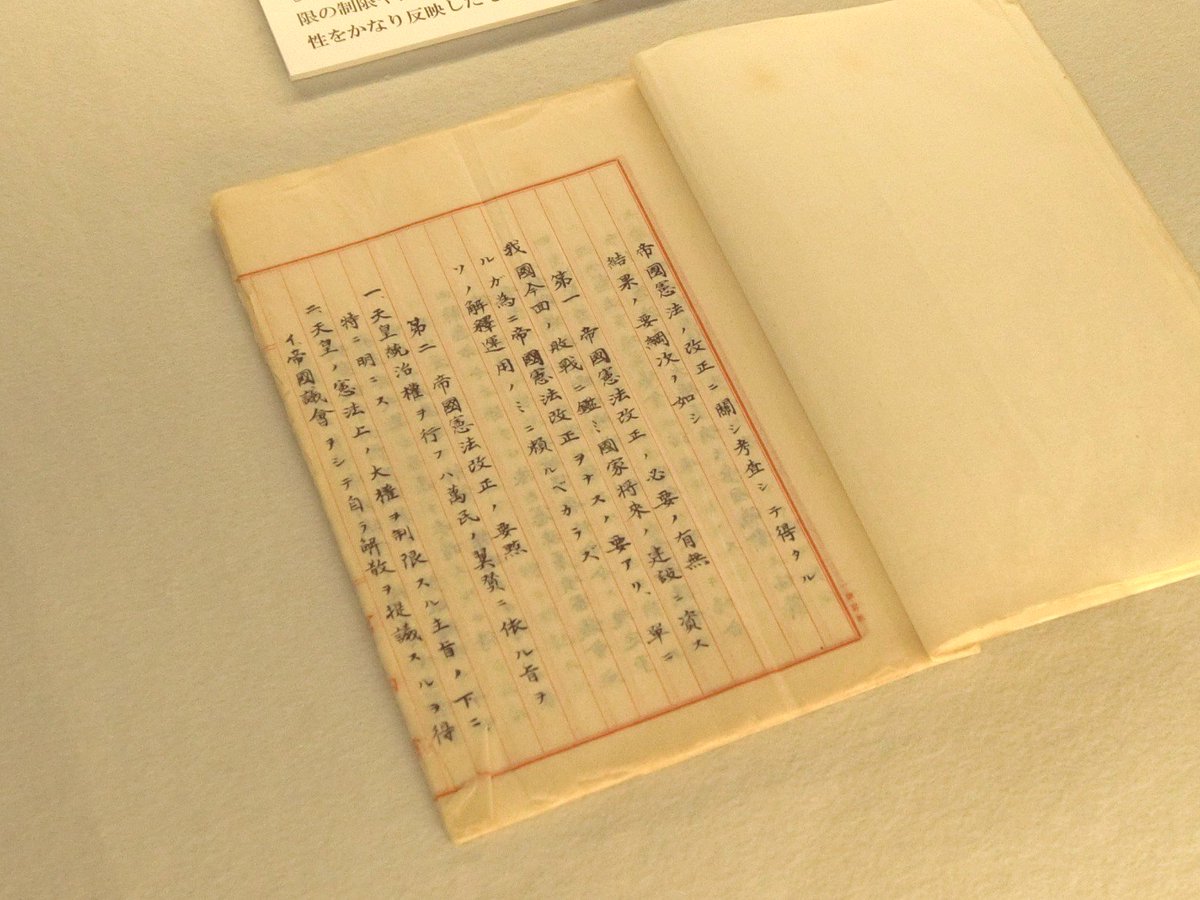 限の制限や
性をかなり反映したも
帝國憲法ノ改正ニ關シ考査シテ得タル
結果ノ要綱次ノ如シ
第一 帝國憲法改正ノ必要ノ有無
我國今回ノ敗戰ニ鑑ミ國家将來ノ建設ニ資ス
ルガ為ニ帝國憲法改正ヲナスノ要アリ、單ニ
ソノ解釋運用ノミニ頼ルベカラズ
第二 帝國憲法改正ノ要點
一、天皇統治權ヲ行フハ萬民ノ翼贊ニ依ル旨ヲ
特ニ明ニス
二、天皇ノ憲法上ノ大權ヲ制限スル主旨ノ下ニ
イ、帝國議會ヲシテ自ラ解散ヲ提議スルヲ得